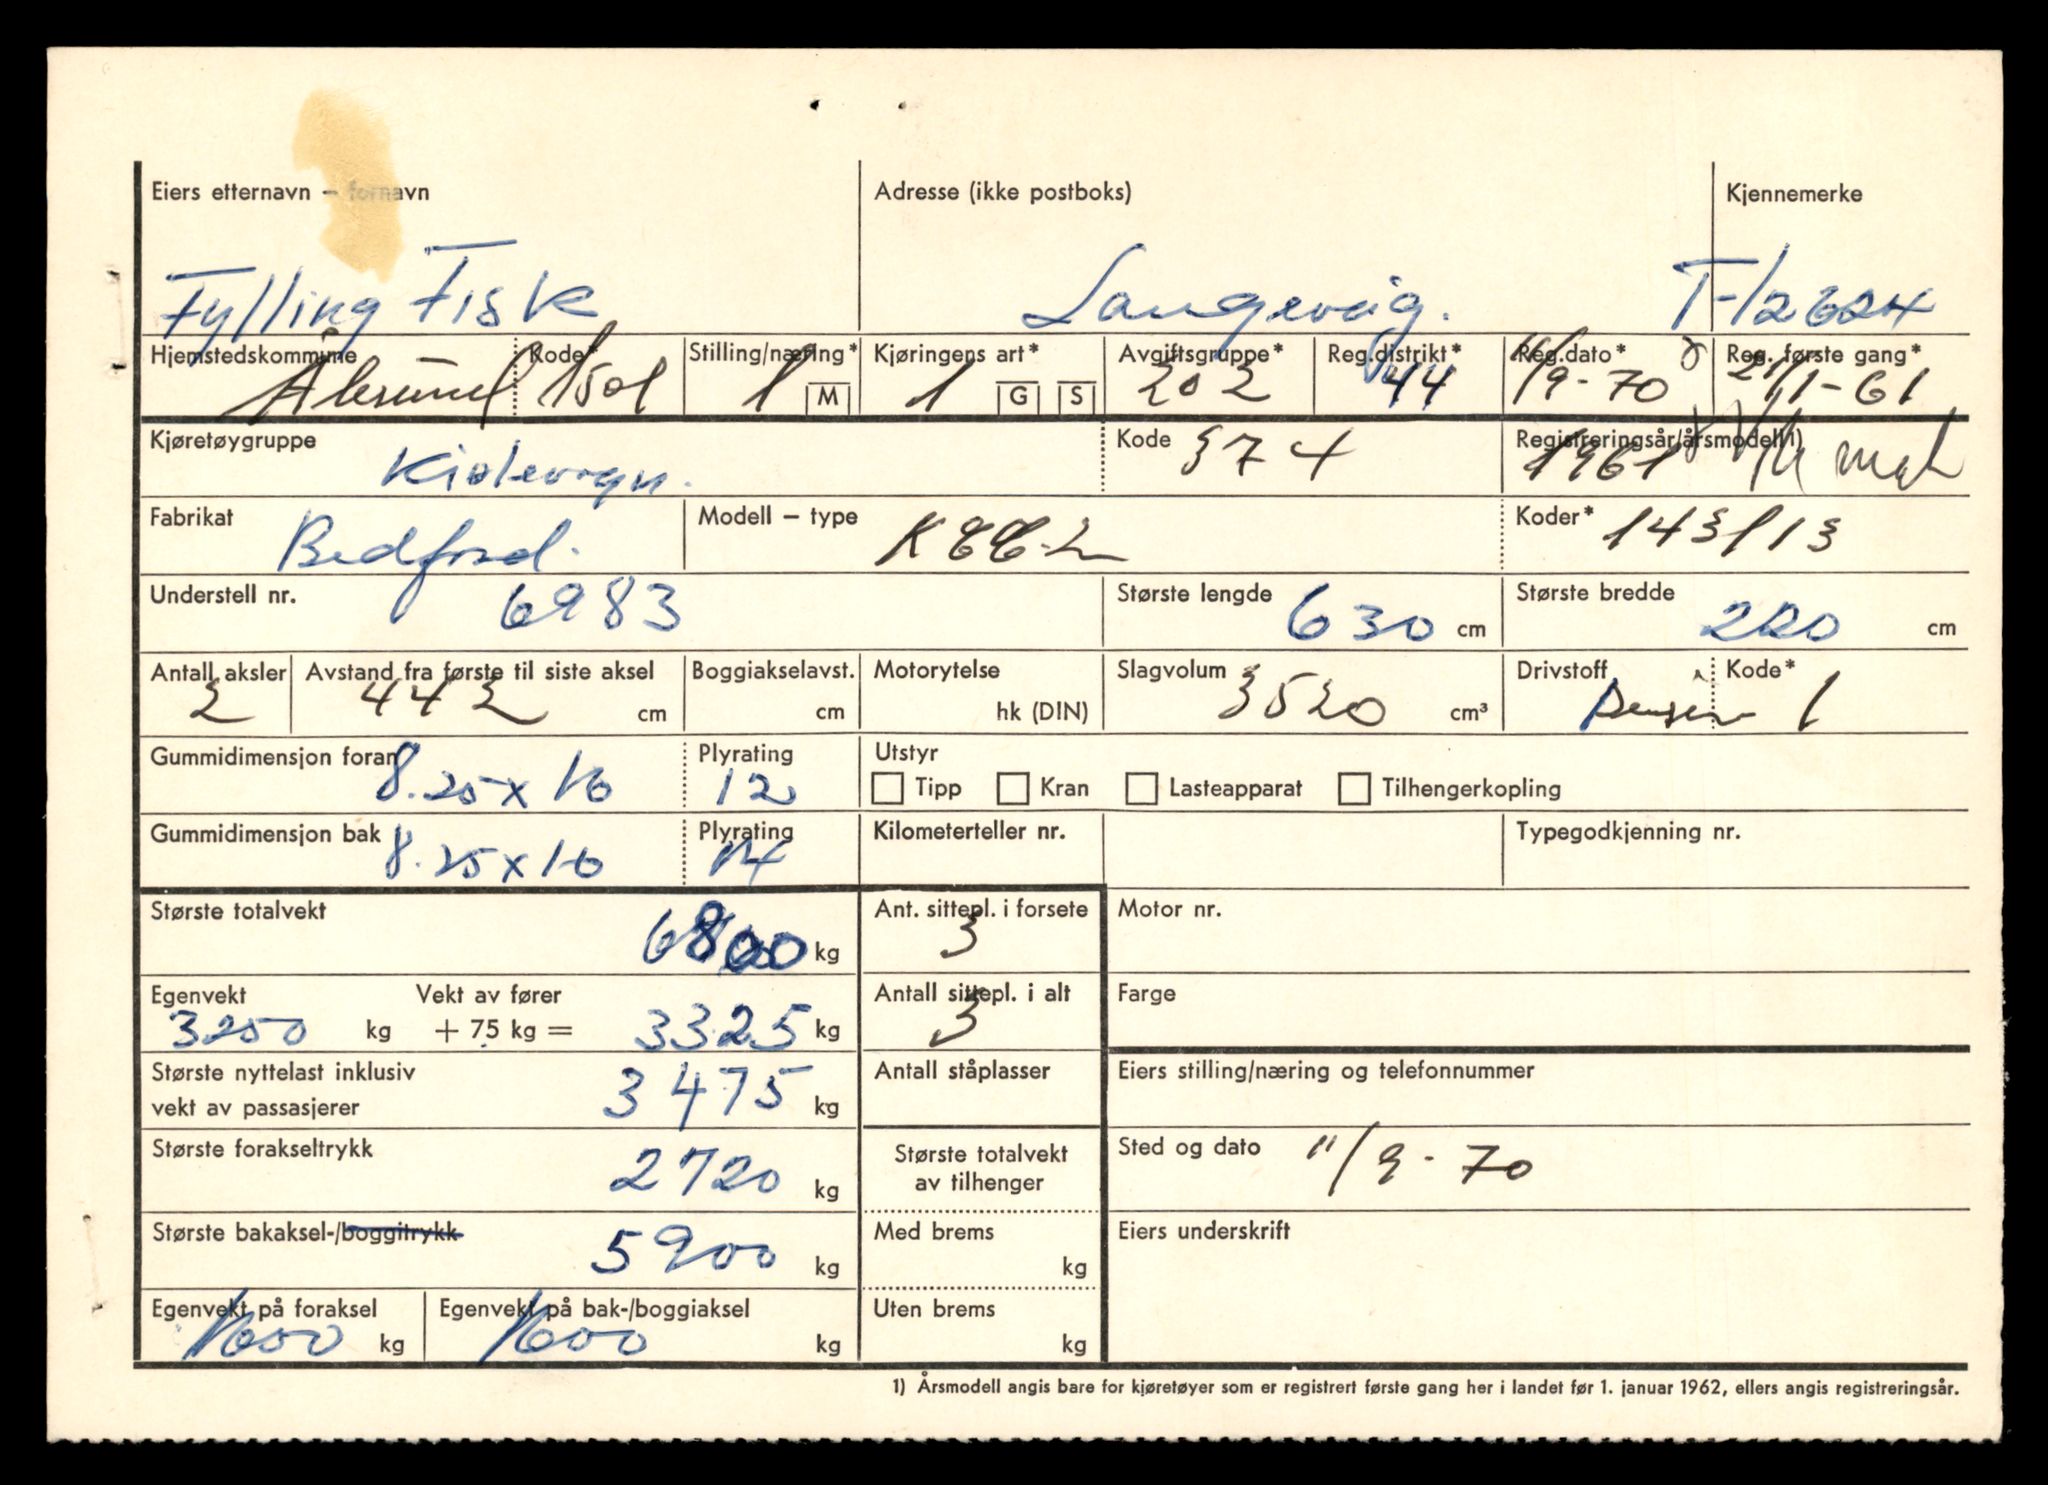 Eiers etternavn – fornavn Adresse (ikke postboks) Kjennemerke
Fylling Fisk Langevåg. T-12624
Hjemstedskommune Kode* Stilling/næring* Kjøringens art* Avgiftsgruppe* Reg.distrikt* Reg.dato* Reg. første gang*
Ålesund 1501 1 M 1 G S 202 44 11/9-70 21/1-61
Kjøretøygruppe Kode Registreringsår/årsmodell 1)
Kjølevogn. 374 1961
Fabrikat Modell – type Koder*
Bedford. 143113
Understell nr. 6983 Største lengde 630 cm Største bredde 220 cm
Antall aksler Avstand fra første til siste aksel Boggiakselavst. Motorytelse Slagvolum Drivstoff Kode*
2 442 cm cm hk (DIN) 3520 cm³ Bensin 1
Gummidimensjon foran 8.25 x 16 Plyrating 12 Utstyr
Tipp Kran Lasteapparat Tilhengerkopling
Gummidimensjon bak 8.25 x 16 Plyrating 14 Kilometerteller nr. Typegodkjenning nr.
Største totalvekt 6800 kg Ant. sittepl. i forsete 3 Motor nr.
Egenvekt Vekt av fører Antall sittepl. i alt Farge
3250 kg + 75 kg = 3325 kg 3
Største nyttelast inklusiv Antall ståplasser Eiers stilling/næring og telefonnummer
vekt av passasjerer 3475 kg
Største forakseltrykk 2720 kg Største totalvekt av tilhenger Sted og dato 11/9-70
Største bakaksel-/boggitrykk 5900 kg Med brems kg Eiers underskrift
Egenvekt på foraksel Egenvekt på bak-/boggiaksel Uten brems
1600 kg 1600 kg kg
1) Årsmodell angis bare for kjøretøyer som er registrert første gang her i landet før 1. januar 1962, ellers angis registreringsår.